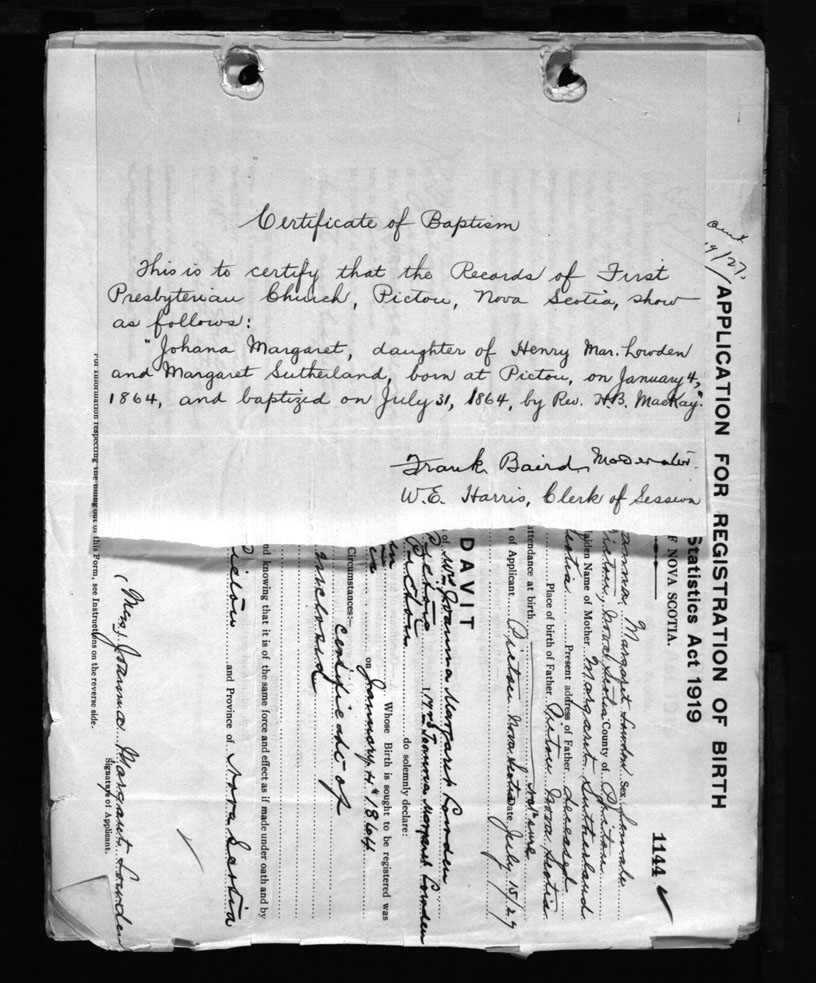 Certificate of Baptism
This is to certify that the Records of First
Presbyterian Church, Pictou, Nova Scotia, show
as follows:
"Johana Margaret, daughter of Henry Mar. Lowden
and Margaret Sutherland, born at Pictou, on January 4,
1864, and baptized on July 31, 1864, by Rev. H.B. MacKay."
Frank Baird, Moderator.
W.E. Harris, Clerk of Session
19/27.
APPLICATION FOR REGISTRATION OF BIRTH
Statistics Act 1919
F NOVA SCOTIA.
1144
Margaret Lowden Sex female
Nova Scotia County of Pictou
Name of Mother Margaret Sutherland
Scotia Present address of Father deceased
Place of birth of Father Pictou Nova Scotia
attendance at birth
of Applicant Pictou Nova Scotia Date July 15/27
DAVIT
of Mrs Joanna Margaret Lowden
Pictou I, Mrs Joanna Margaret Lowden
Pictou do solemnly declare:
Whose Birth is sought to be registered was
on January 4th 1864
Circumstances:— certificate of
inclosed
nd knowing that it is of the same force and effect as if made under oath and by
Pictou and Province of Nova Scotia
(Mrs) Joanna Margaret Lowden
Signature of Applicant.
For information respecting the filling out of this Form, see Instructions on the reverse side.